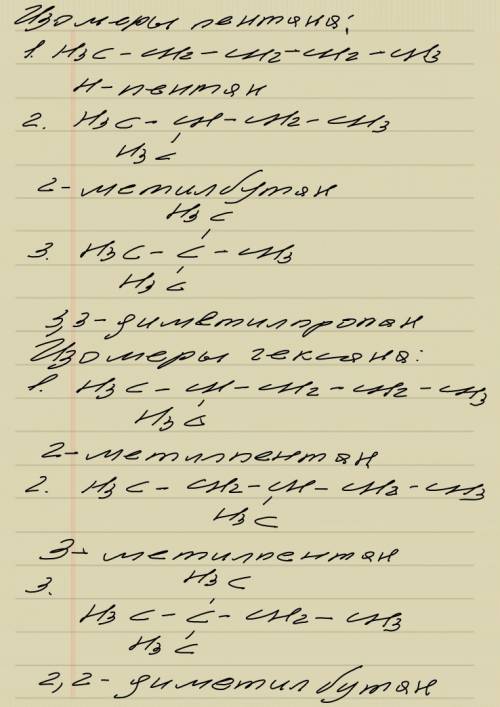 Изомеры пентана:
1. H3C - CH2 - CH2 - CH2 - CH3
Н-пентан
2. H3C - CH - CH2 - CH3
H3C
2-метилбутан
H3C
3. H3C - C - CH3
H3C
3,3-диметилпропан
Изомеры гексана:
1. H3C - CH - CH2 - CH2 - CH3
H3C
2-метилпентан
2. H3C - CH2 - CH - CH2 - CH3
H3C
3-метилпентан
3. H3C
H3C - C - CH2 - CH3
H3C
2,2-диметилбутан